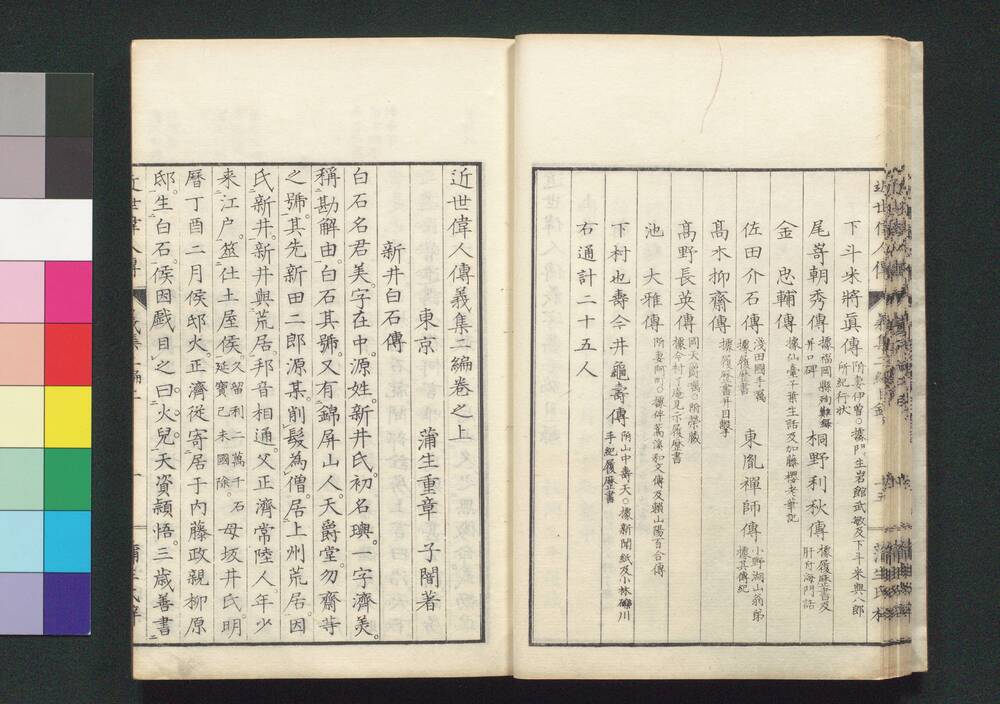 下斗米將眞傳 附妻伊曽○據門生岩館武敏及下斗米與八郎所紀行狀
尾嵜朝秀傳 據福岡縣殉難錄幷口碑 桐野利秋傳 據履歷書及肝付海門話
金 忠輔傳 據仙臺千葉生話及加藤櫻老筆記
佐田介石傳 淺田國手屬據履歷書 東胤禪師傳 小野湖山翁弟據其傳紀
髙木抑齋傳 據履歷書幷目擊
髙野長英傳 岡天爵囑○附榮藏據今村了庵見示履歷書
池 大雅傳 附妻阿町○據伴蒿溪和文傳及賴山陽百合傳
下村也壽今井龜壽傳 附山中壽天○據新聞紙及小林 川手紀履歷書
右通計二十五人
近世偉人傳義集二編卷之上
東京 蒲生重章 子闇著
新井白石傳
白石名君美。字在中。源姓。新井氏。初名璵。一字濟美。
稱勘解由。白石其號。又有錦屏山人。天爵堂。勿齋等
之號。其先新田二郎源某。削髮為僧。居上州荒居。因
氏新井。新井與荒居。邦音相通。父正濟常陸人。年少
来江户。筮仕土屋侯。久留利二萬千石延寶己未國除。母坂井氏。明
曆丁酉二月侯邸火。正濟從寄居于内藤政親柳原
邸。生白石。侯因戲目之曰。火兒。天資穎悟。三歲善書